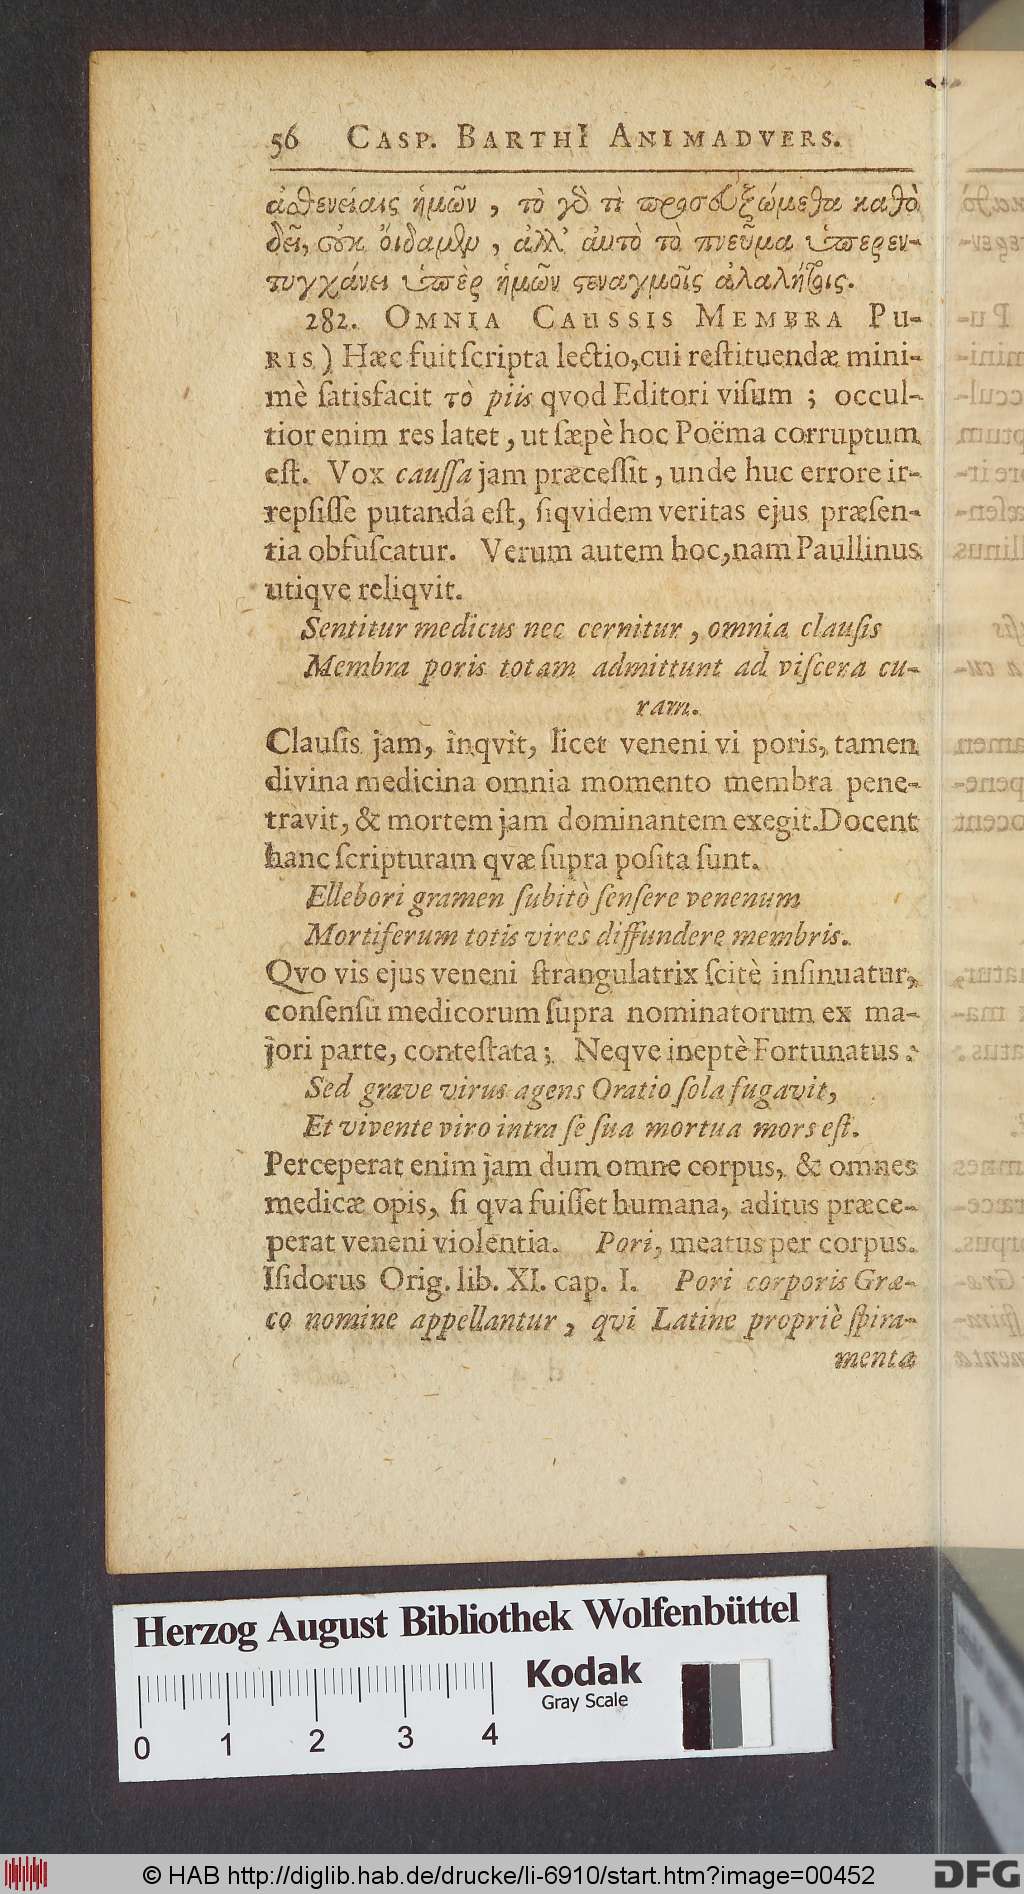 56 CASP. BARTHI ANIMADVERS.
ἀσθενείαις ἡμῶν, τὸ γὸ τὶ προσευξώμεθα καθὸ
δεῖ, οὐκ ὄιδαμεν, ἀλλ' ἀυτὸ τὸ πνεῦμα ὑπερεν-
τυγχάνει ὑπὲρ ἡμῶν στεναγμοῖς ἀλαλήτοις.
282. OMNIA CAUSSIS MEMBRA PU-
RIS) Hæc fuit ſcripta lectio, cui reſtituendæ mini-
mè ſatisfacit τὸ piis qvod Editori viſum ; occul-
tior enim res latet, ut ſæpè hoc Poëma corruptum
eſt. Vox cauſſa jam præceſſit, unde huc errore ir-
repſiſſe putanda eſt, ſiqvidem veritas ejus præſen-
tia obfuſcatur. Verum autem hoc, nam Paullinus
utiqve reliqvit.
Sentitur medicus nec cernitur, omnia clauſis
Membra poris totam admittunt ad viſcera cu-
ram.
Clauſis jam, inqvit, licet veneni vi poris, tamen
divina medicina omnia momento membra pene-
travit, & mortem jam dominantem exegit. Docent
hanc ſcripturam qvæ ſupra poſita ſunt.
Ellebori gramen ſubitò ſenſere venenum
Mortiferum totis vires diffundere membris.
Qvo vis ejus veneni ſtrangulatrix ſcitè inſinuatur,
conſenſu medicorum ſupra nominatorum ex ma-
jori parte, conteſtata ; Neqve ineptè Fortunatus :
Sed grave virus agens Oratio ſola fugavit,
Et vivente viro intra ſe ſua mortua mors eſt.
Perceperat enim jam dum omne corpus, & omnes
medicæ opis, ſi qva fuiſſet humana, aditus præce-
perat veneni violentia. Pori, meatus per corpus.
Iſidorus Orig. lib. XI. cap. I. Pori corporis Græ-
co nomine appellantur, qvi Latine propriè ſpira-
menta
Herzog August Bibliothek Wolfenbüttel
Kodak
Gray Scale
0 1 2 3 4
© HAB http://diglib.hab.de/drucke/li-6910/start.htm?image=00452
DFG